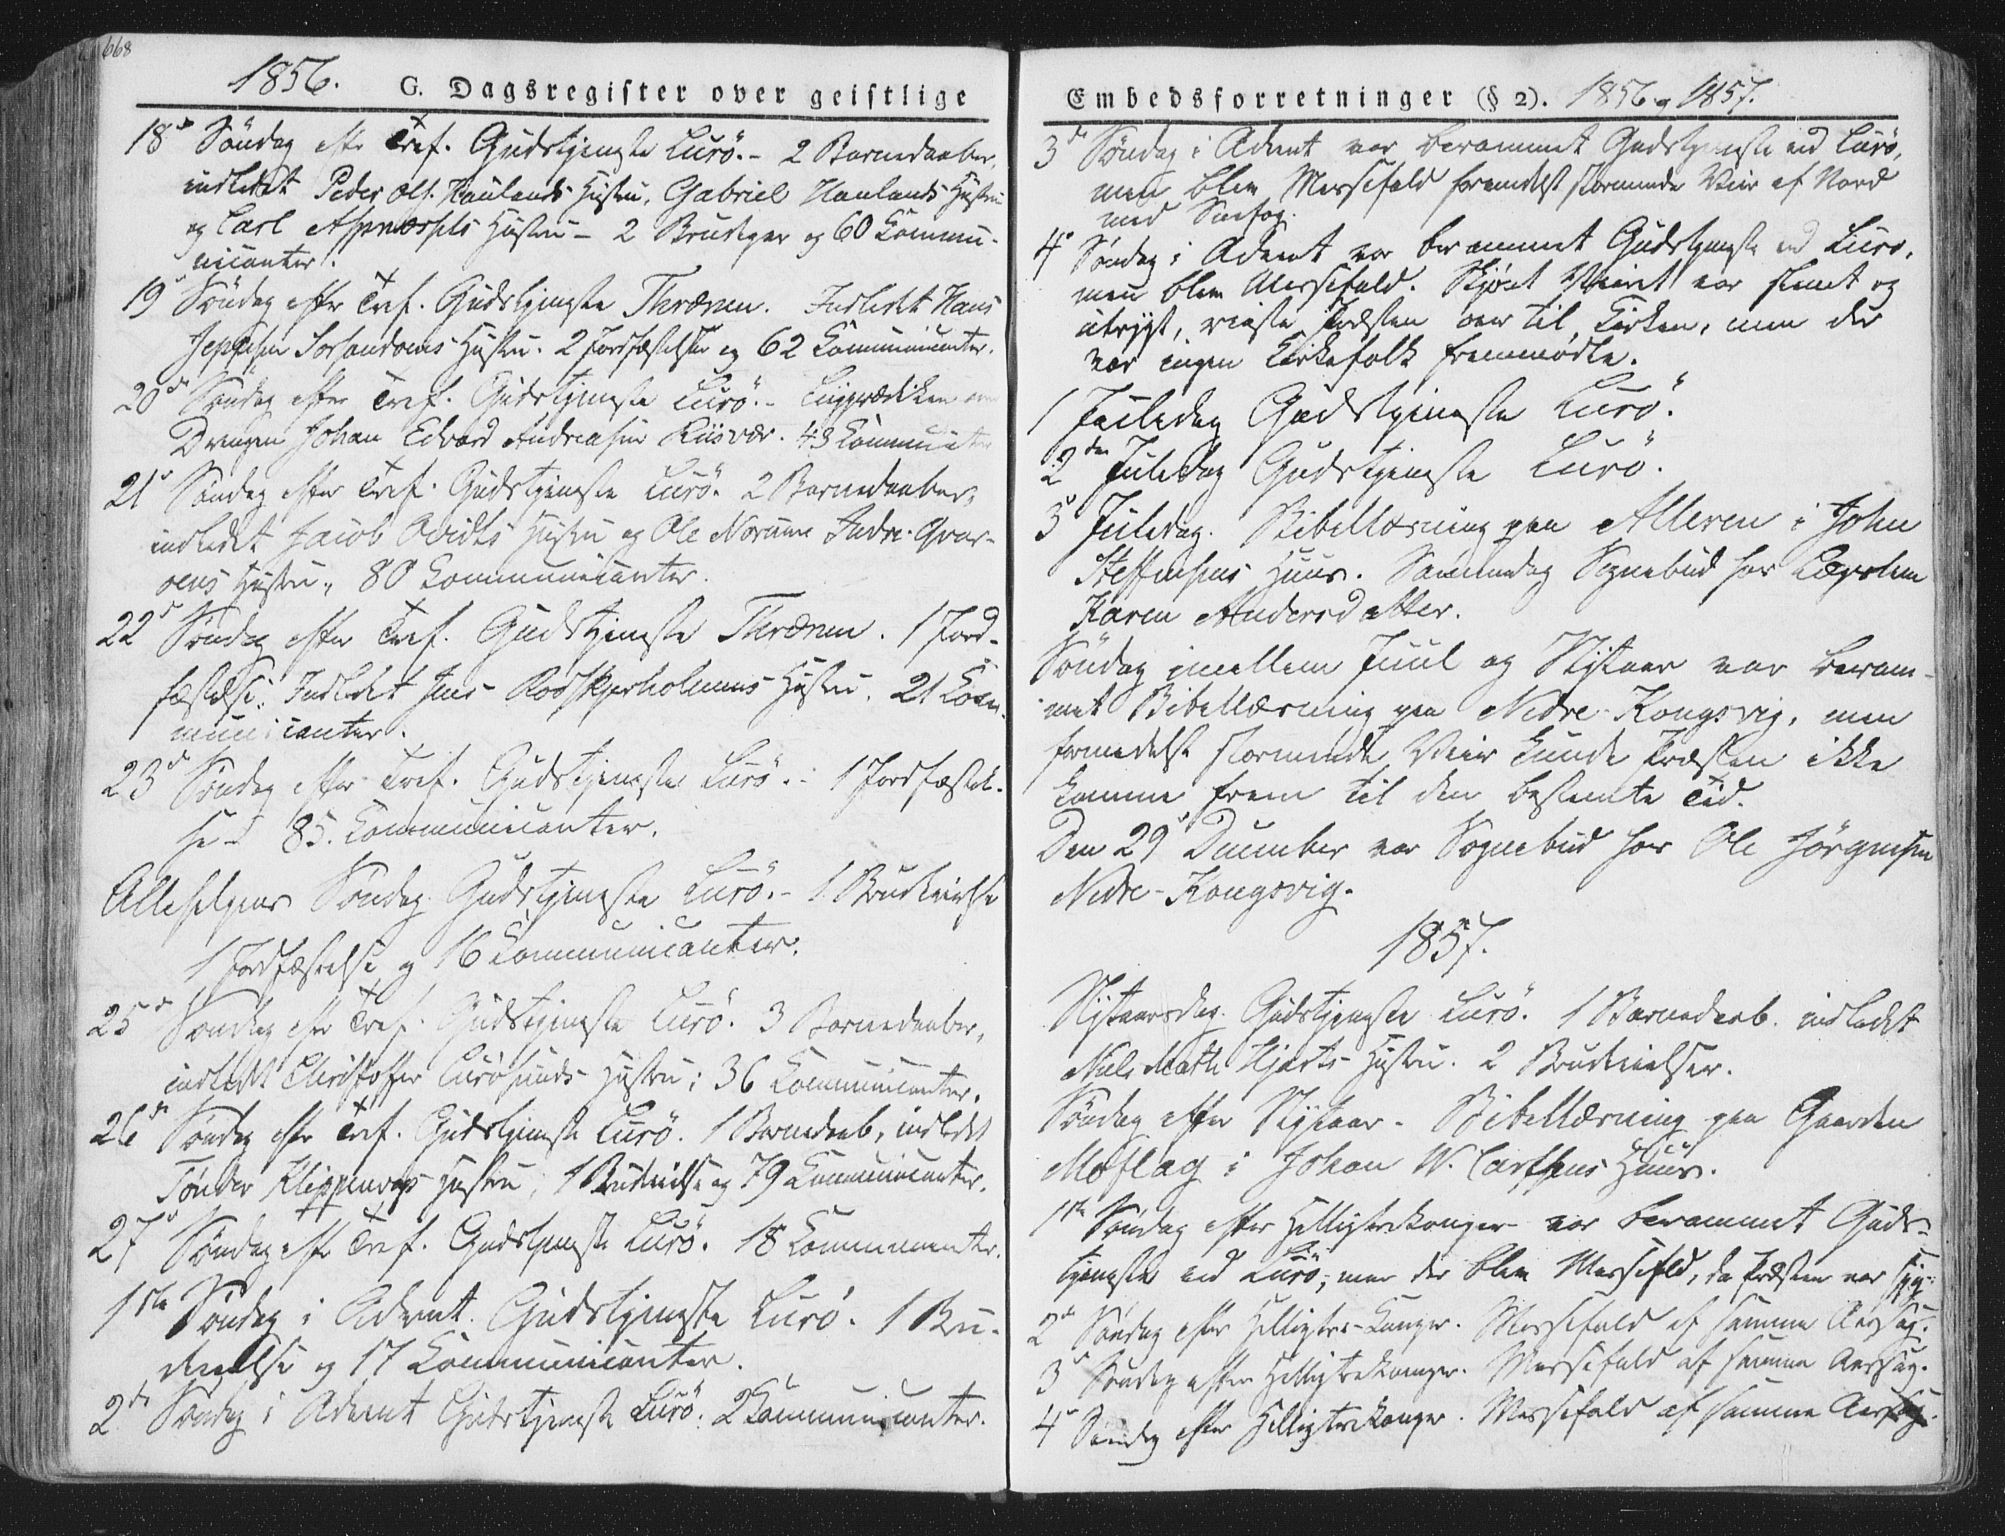 668
1856. G. Dagsregister over geistlige
18de Søndag eft. Tref. Gudstjeneste Lurö. - 2 Barnedaaber,
indledet Peder Ols. Haulands Hustru, Gabriel Haulands Hustru
og Carl Hustru - 2 Brudepar og 60 Kommu-
nicanter.
19de Søndag efter Tref. Gudstjeneste Thrænen. Indledet Hans
Jeppesen Hustru. 2 Jordfæstelser og 62 Communicanter.
20de Søndag efter Tref. Gudstjeneste Lurö. - Liigprædiken over
Drengen Johan Edvard Andreasen Riisvær. 43 Communicanter
21de Søndag efter Tref. Gudstjeneste Lurö. 2 Barnedaaber,
indledet Jacob Hustru og Ole Indre Qvar-
øens Hustru, 80 Communicanter.
22de Søndag efter Tref. Gudstjeneste Thrænen. 1 Jord-
fæstelse. Indledet Jens Rodskjærholmens Hustru. 21 Com-
municanter.
23de Søndag efter Tref. Gudstjeneste Lurö. - 1 Jordfæstel-
se - 85 Communicanter.
Allehelgens Søndag Gudstjeneste Lurö. - 1 Brudevielse
1 Jordfæstelse og 16 Communicanter.
25de Søndag eft. Tref. Gudstjeneste Lurö. 3 Barnedaaber,
indledet Christoffer Lurösunds Hustru; 36 Communicanter.
26de Søndag eft. Tref. Gudstjeneste Lurö. 1 Barnedaab, indledet
Tønder Klippenvags Hustru, 1 Brudevielse og 79 Communicanter.
27de Søndag eft. Tref. Gudstjeneste Lurö. 18 Communicanter.
1ste Søndag i Advent. Gudstjeneste Lurö. 1 Bru-
devielse og 17 Communicanter.
2den Søndag i Advent Gudstjeneste Lurö. 2 Communicanter.
Embedsforretninger (§ 2). 1856 og 1857.
3de Søndag i Advent var berammet Gudstjeneste ved Lurö,
men blev Messefald formedelst stormende Veir af Nord
med Snefog.
4de Søndag i Advent var berammet Gudstjeneste ved Lurö,
men blev Messefald. Skjønt Veiret var slemt og
utrygt, reiste Præsten over til Kirken, men der
var ingen Kirkefolk fremmødte.
1 Juledag Gudstjeneste Lurö.
2den Juledag Gudstjeneste Lurö.
3de Juledag. Bibellæsning paa Alleren i John
Steffensens Huus. Sammedag Sognebud hos
Karen Andersdatter.
Søndag imellem Juul og Nytaar var beram-
met Bibellæsning paa Nedre-Kongsvig, men
formedelst stormende Veir kunde Præsten ikke
komme frem til den bestemte Tid.
Den 29de December var Sognebud hos Ole Jörgensen
Nedre-Kongsvig.
1857.
Nytaarsdag. Gudstjeneste Lurö. 1 Barnedaab. indledet
Niels Math. Hjorts Hustru. 2 Brudevielser.
Søndag efter Nytaar - Bibellæsning paa Gaarden
Moflag i Johan W. Carlsens Huus.
1ste Søndag efter Helligtrekonger var berammet Guds-
tjeneste ved Lurö, men der blev Messefald, da Præsten var syg.
2den Søndag efter Helligtre-Konger. Messefald af samme Aarsag.
3de Søndag efter Helligtrekonger. Messefald af samme Aarsag.
4de Søndag efter Helligtrekonger. Messefald af samme Aarsag.